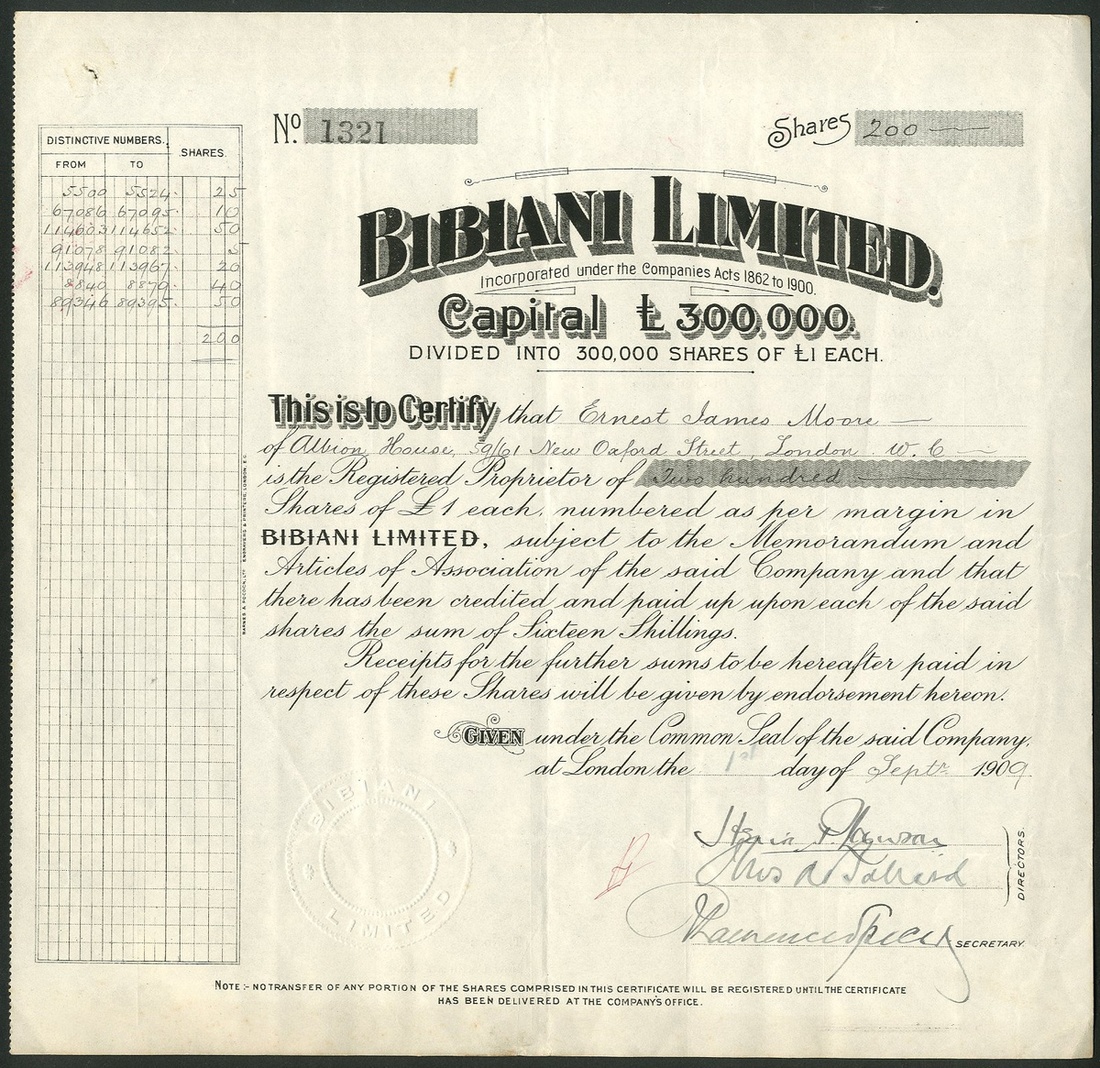 No. 1321
Shares 200
DISTINCTIVE NUMBERS. SHARES.
FROM TO
5500 5524 25
67086 67095 10
114603 114652 50
91078 91082 5
113948 113967 20
8840 8879 40
89346 89395 50
200
BIBIANI LIMITED.
Incorporated under the Companies Acts 1862 to 1900.
Capital £300,000.
DIVIDED INTO 300,000 SHARES OF £1 EACH.
This is to Certify that Ernest James Moore
of Albion House, 59/61 New Oxford Street, London W.C
is the Registered Proprietor of Two hundred
Shares of £1 each, numbered as per margin in
BIBIANI LIMITED, subject to the Memorandum and
Articles of Association of the said Company and that
there has been credited and paid up upon each of the said
shares the sum of Sixteen Shillings.
Receipts for the further sums to be hereafter paid in
respect of these Shares will be given by endorsement hereon.
GIVEN under the Common Seal of the said Company,
at London the 1st day of Septr 1909.
BIBIANI
LIMITED
DIRECTORS.
SECRETARY.
NOTE:- NO TRANSFER OF ANY PORTION OF THE SHARES COMPRISED IN THIS CERTIFICATE WILL BE REGISTERED UNTIL THE CERTIFICATE
HAS BEEN DELIVERED AT THE COMPANY'S OFFICE.